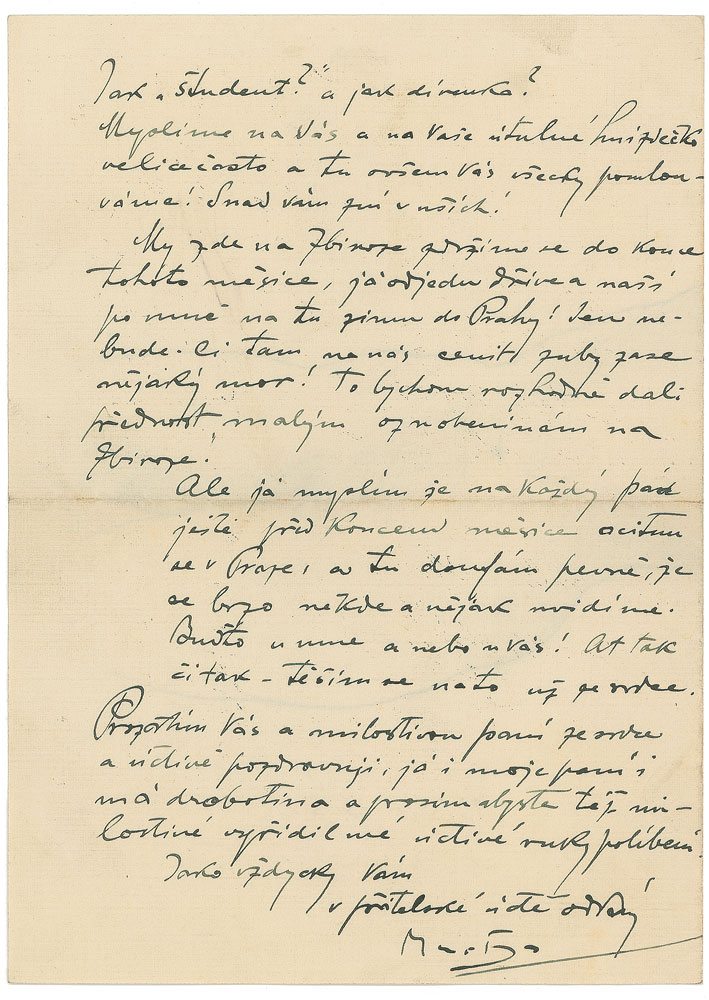 Jak „student?“ a jak dívenka?
Myslíme na Vás a na Vaše útulné hnízdečko
velice často a tu ovšem Vás všecky pomlou-
váme! Snad vám zní v uších!
My zde na Zbiroze zdržíme se do konce
tohoto měsíce, já odjedu dříve a naši
po mně na tu zimu do Prahy! Jen ne-
bude-li tam na nás cenit zuby zase
nějaký mor! To bychom rozhodně dali
přednost malým oznobeninám na
Zbiroze!
Ale já myslím že na každý pád
ještě před koncem měsíce ocitnu
se v Praze, a tu doufám pevně, že
se brzo někde a nějak uvidíme.
Buďto u mne a nebo u Vás! Ať tak
či tak – těším se na to už ze srdce.
Prozatím Vás a milostivou paní ze srdce
a uctivě pozdravuji, já i moje paní i
má drobotina a prosím abyste též mi-
lostivé vyřídil mé uctivé ruky políbení.
Jako vždycky Vám
v přátelské úctě oddaný